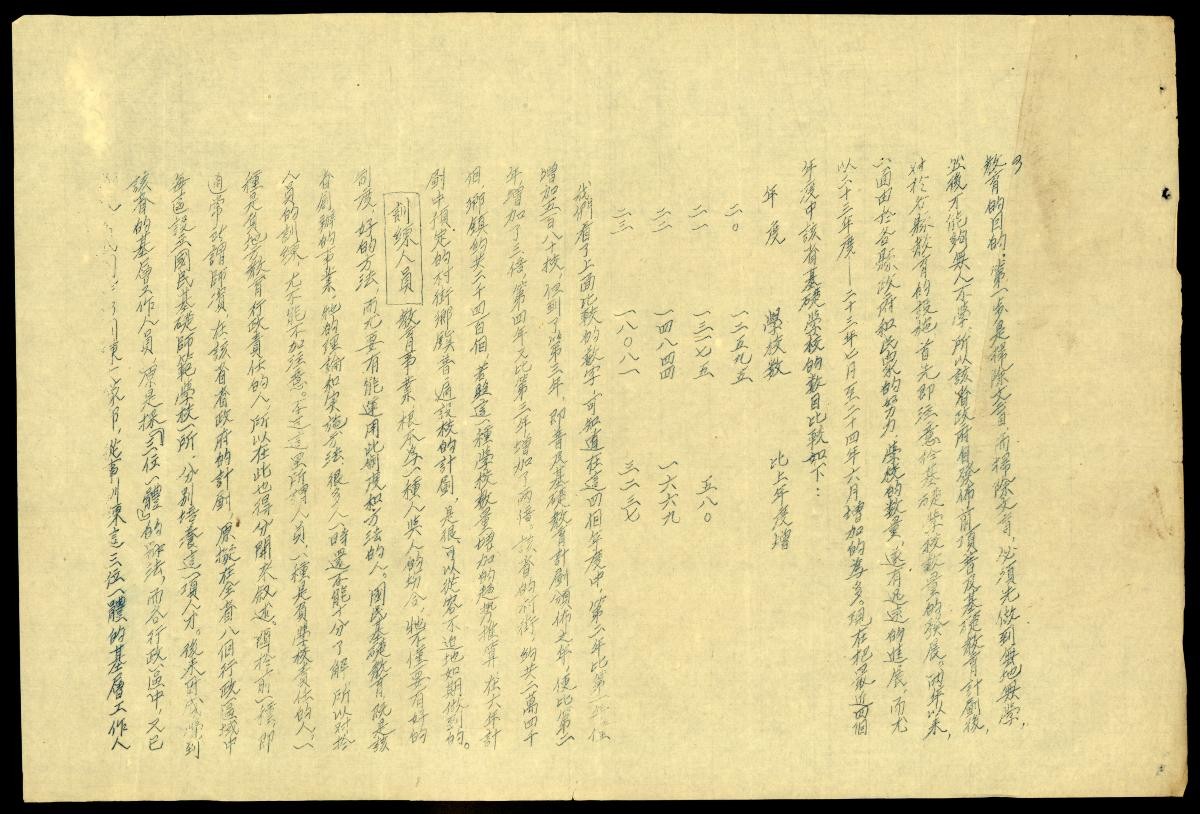 3
教育的目的：第一步是掃除文盲，而掃除文盲，必須先做到無地無學，
然後才能夠無人不學，所以該省政府自發佈前項普及基礎教育計劃後，
對於各縣教育的設施，首先即注意於基礎學校數量的發展。兩年以來，
一面由於各縣政府和民眾的努力，學校的數量，遂有迅速的進展，而尤
以二十三年度——二十三年七月至二十四年六月增加的為多。現在把最近四個
年度中該省基礎學校的數目比較如下：
年度 學校數 比上年度增
二〇 一二五九五
二一 一三一七五 五八〇
二二 一四八四四 一六六九
二三 一八〇八一 三二三七
我們看了上面比較的數字，可知道在這四個年度中，第二年比第一年，僅
增加五百八十校，但到了第三年，即普及基礎教育計劃頒佈之年，便比第二
年增加了三倍，第四年又比第三年增加了兩倍。該省的村街，約共二萬四千
個，鄉鎮約共二千四百個，若照這一種學校數量增加的趨勢推算，在六年計
劃中預定的村街鄉鎮普遍設校的計劃，是很可以從容不迫地如期做到的。
訓練人員 教育事業，根本為一種人與人的場合，牠不僅要有好的
制度，好的方法，而尤要有能運用此制度和方法的人。國民基礎教育既是該
省創辦的事業，牠的理論和實施方法，很多人一時還不能十分了解，所以對於
人員的訓練，尤不能不加注意。不過這里所謂人員，一種是負學校責任的人，一
種是負地方教育行政責任的人，所以在此也得分開來敘述。關於前一種，即
通常所謂師資，在該省省政府的計劃，原擬在全省八個行政區域中
每區設立國民基礎師範學校一所，分別培養這一項人才。後來因感覺到
該省的基層工作人員，原是採「三位一體」的辦法，而各行政區中，又已
訓練這三位一體的基層工作人